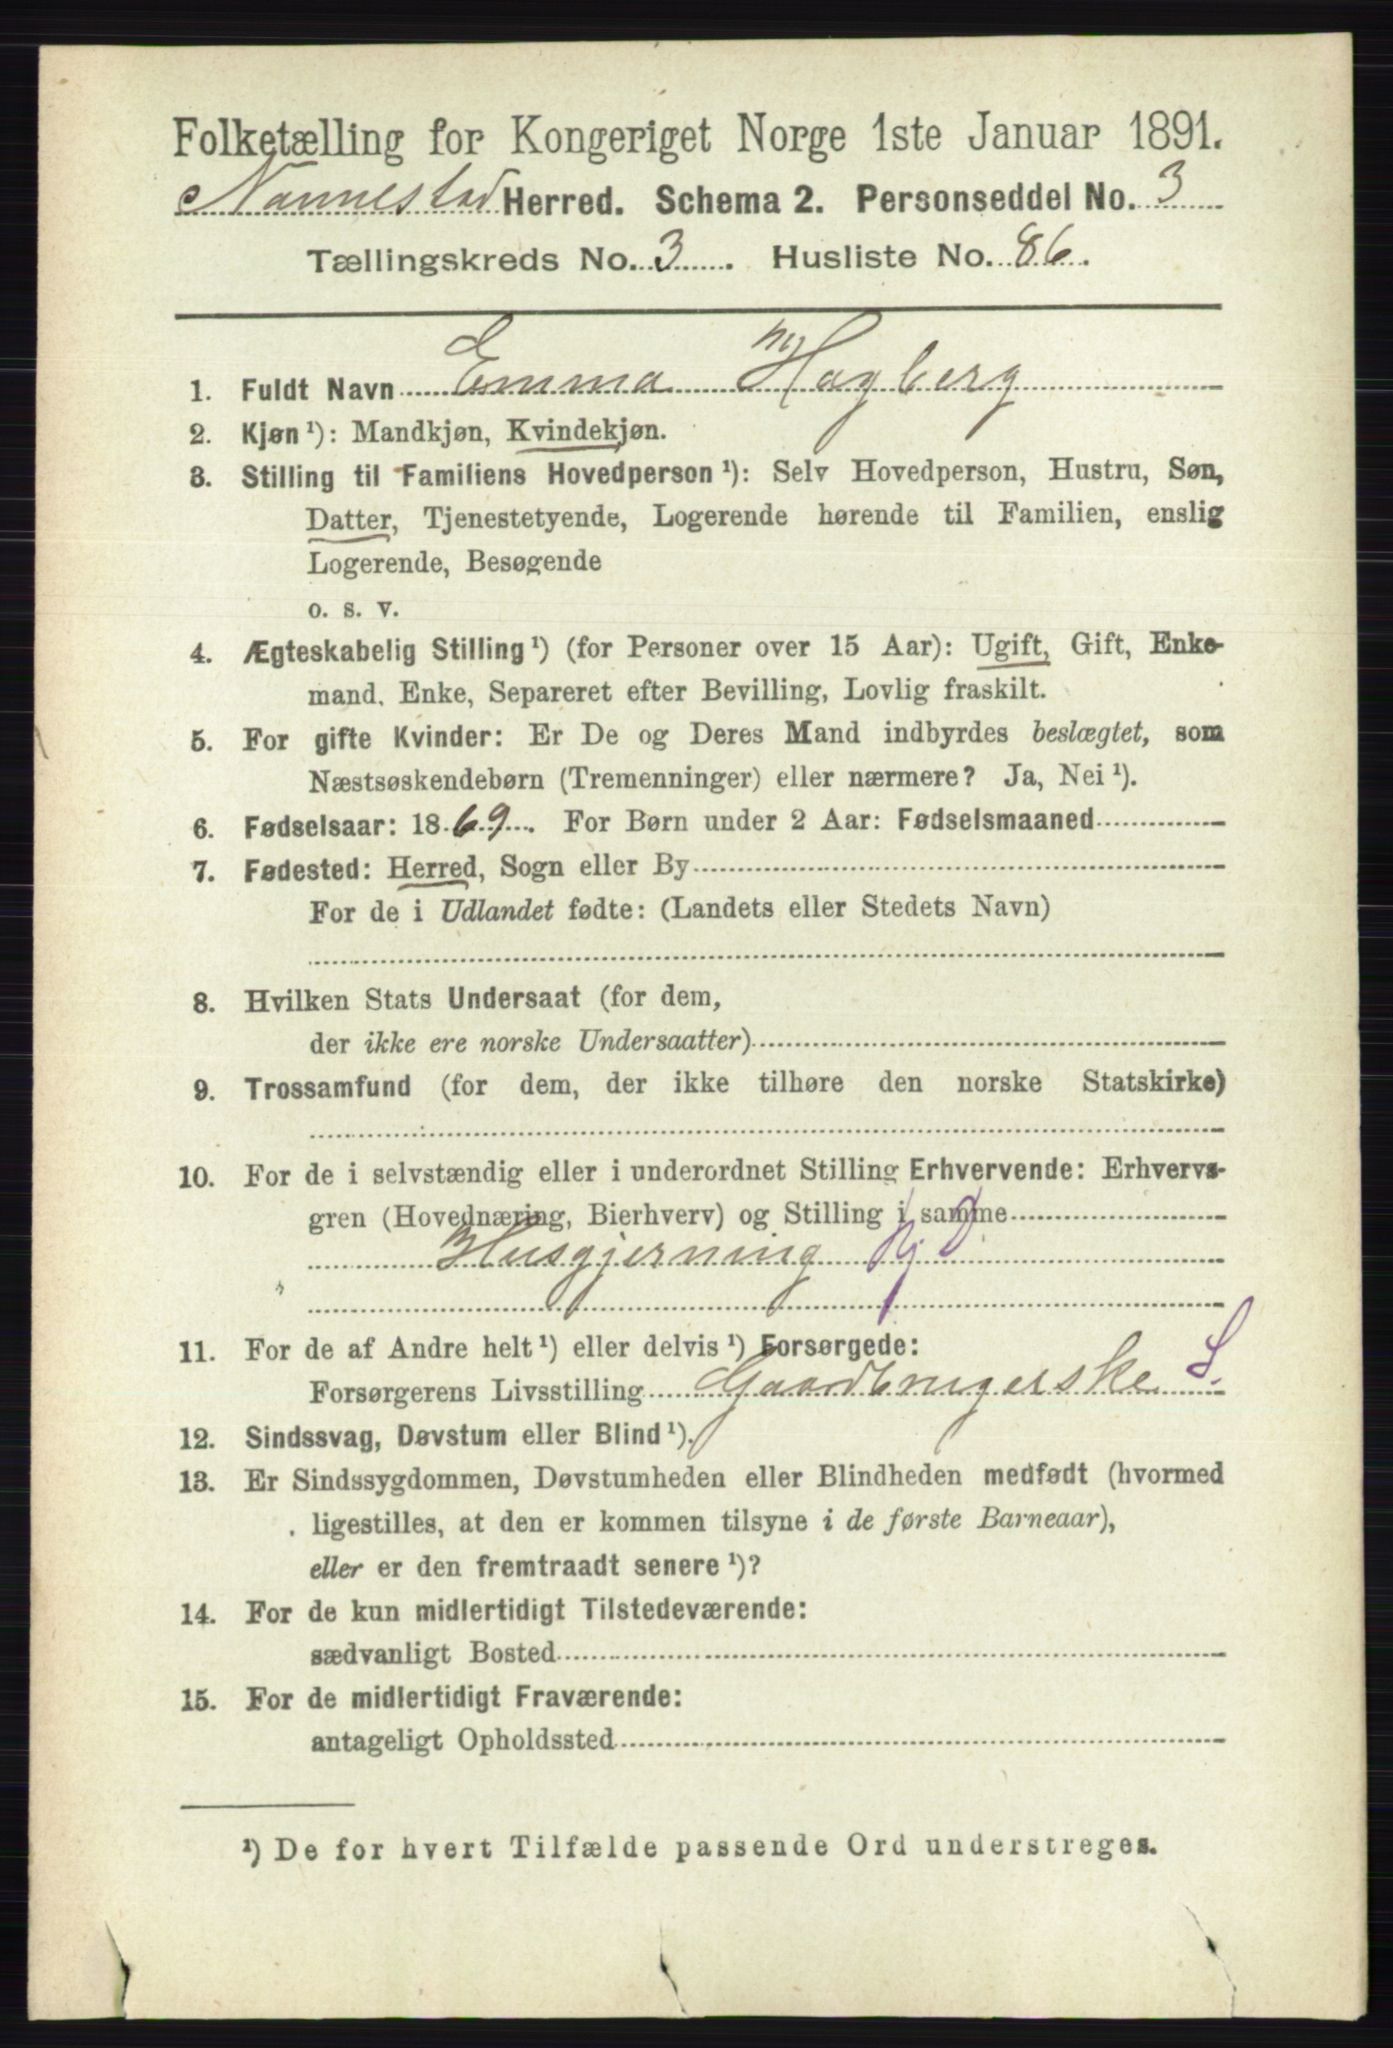 Folketælling for Kongeriget Norge 1ste Januar 1891.
Nannestad Herred. Schema 2. Personseddel No. 3
Tællingskreds No. 3. Husliste No. 86.
1. Fuldt Navn Emma Hagberg
2. Kjøn ¹): Mandkjøn, Kvindekjøn.
3. Stilling til Familiens Hovedperson ¹): Selv Hovedperson, Hustru, Søn,
Datter, Tjenestetyende, Logerende hørende til Familien, enslig
Logerende, Besøgende
o. s. v.
4. Ægteskabelig Stilling ¹) (for Personer over 15 Aar): Ugift, Gift, Enke-
mand, Enke, Separeret efter Bevilling, Lovlig fraskilt.
5. For gifte Kvinder: Er De og Deres Mand indbyrdes beslægtet, som
Næstsøskendebørn (Tremenninger) eller nærmere? Ja, Nei ¹).
6. Fødselsaar: 1869. For Børn under 2 Aar: Fødselsmaaned
7. Fødested: Herred, Sogn eller By
For de i Udlandet fødte: (Landets eller Stedets Navn)
8. Hvilken Stats Undersaat (for dem,
der ikke ere norske Undersaatter)
9. Trossamfund (for dem, der ikke tilhøre den norske Statskirke)
10. For de i selvstændig eller i underordnet Stilling Erhvervende: Erhvervs-
gren (Hovednæring, Bierhverv) og Stilling i samme
Husgjerning
11. For de af Andre helt ¹) eller delvis ¹) Forsørgede:
Forsørgerens Livsstilling Gaardbrugerske S.
12. Sindssvag, Døvstum eller Blind ¹).
13. Er Sindssygdommen, Døvstumheden eller Blindheden medfødt (hvormed
ligestilles, at den er kommen tilsyne i de første Barneaar),
eller er den fremtraadt senere ¹)?
14. For de kun midlertidigt Tilstedeværende:
sædvanligt Bosted
15. For de midlertidigt Fraværende:
antageligt Opholdssted
¹) De for hvert Tilfælde passende Ord understreges.